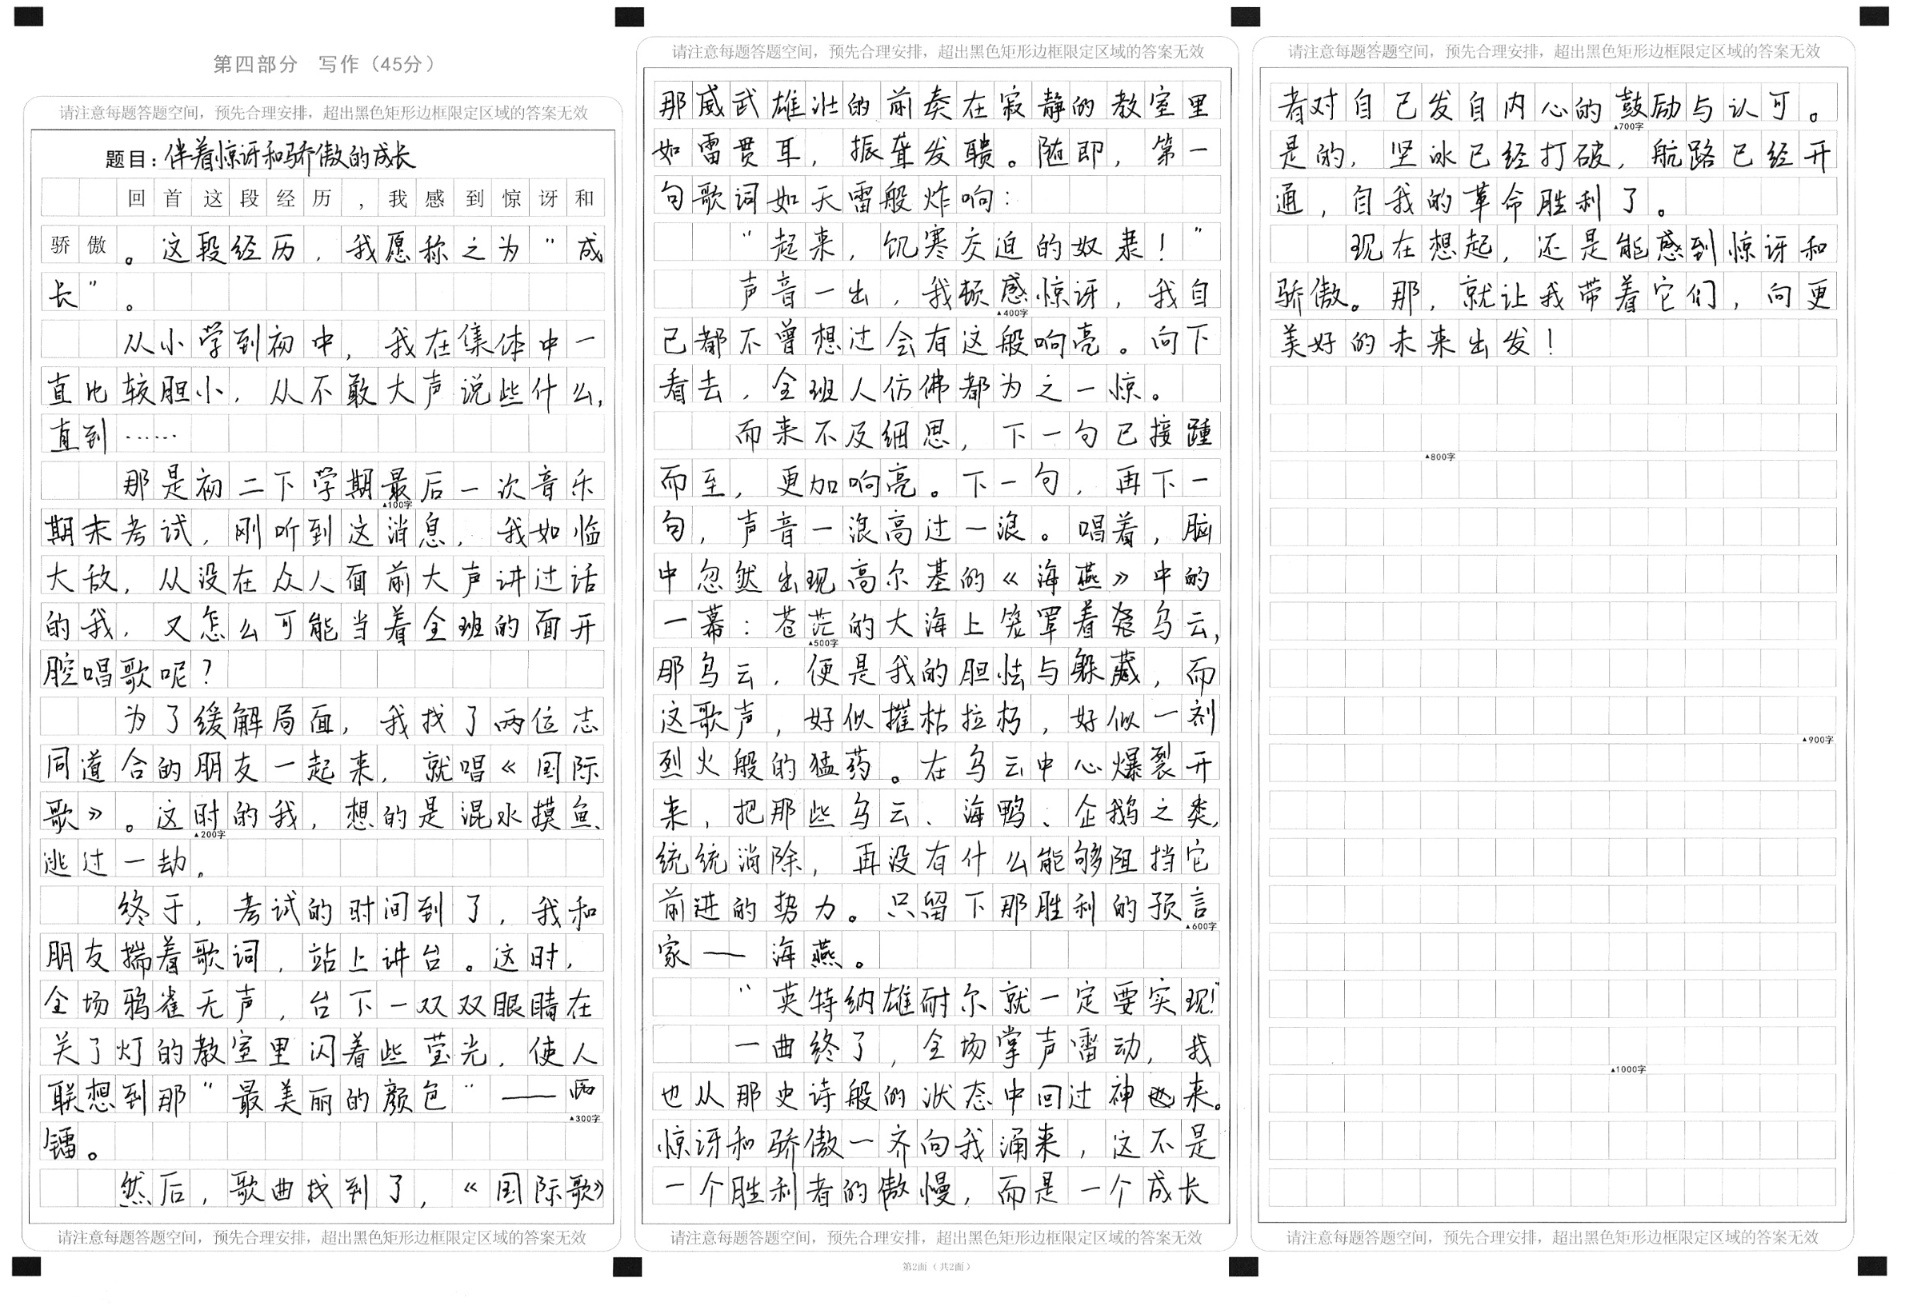 第四部分 写作（45分）
请注意每题答题空间，预先合理安排，超出黑色矩形边框限定区域的答案无效
题目：伴着惊讶和骄傲的成长
回首这段经历，我感到惊讶和
骄傲。这段经历，我愿称之为“成
长”。
从小学到初中，我在集体中一
直比较胆小，从不敢大声说些什么，
直到……
那是初二下学期最后一次音乐
▲100字
期末考试，刚听到这消息，我如临
大敌，从没在众人面前大声讲过话
的我，又怎么可能当着全班的面开
腔唱歌呢？
为了缓解局面，我找了两位志
同道合的朋友一起来，就唱《国际
歌》。这时的我，想的是混水摸鱼、
▲200字
逃过一劫。
终于，考试的时间到了，我和
朋友揣着歌词，站上讲台。这时，
全场鸦雀无声，台下一双双眼睛在
关了灯的教室里闪着些莹光，使人
联想到那“最美丽的颜色”——两
▲300字
镭。
然后，歌曲找到了，《国际歌》
请注意每题答题空间，预先合理安排，超出黑色矩形边框限定区域的答案无效
请注意每题答题空间，预先合理安排，超出黑色矩形边框限定区域的答案无效
那威武雄壮的前奏在寂静的教室里
如雷贯耳，振聋发聩。随即，第一
句歌词如天雷般炸响：
“起来，饥寒交迫的奴隶！”
声音一出，我顿感惊讶，我自
▲400字
己都不曾想过会有这般响亮。向下
看去，全班人仿佛都为之一惊。
而来不及细思，下一句已接踵
而至，更加响亮。下一句，再下一
句，声音一浪高过一浪。唱着，脑
中忽然出现高尔基的《海燕》中的
一幕：苍茫的大海上笼罩着卷乌云，
▲500字
那乌云，便是我的胆怯与躲藏，而
这歌声，好似摧枯拉朽，好似一剂
烈火般的猛药。在乌云中心爆裂开
来，把那些乌云、海鸭、企鹅之类，
统统消除，再没有什么能够阻挡它
前进的势力。只留下那胜利的预言
▲600字
家——海燕。
“英特纳雄耐尔就一定要实现！”
一曲终了，全场掌声雷动，我
也从那史诗般的状态中回过神来。
惊讶和骄傲一齐向我涌来，这不是
一个胜利者的傲慢，而是一个成长
请注意每题答题空间，预先合理安排，超出黑色矩形边框限定区域的答案无效
第2面（共2面）
请注意每题答题空间，预先合理安排，超出黑色矩形边框限定区域的答案无效
者对自己发自内心的鼓励与认可。
▲700字
是的，坚冰已经打破，航路已经开
通，自我的革命胜利了。
现在想起，还是能感到惊讶和
骄傲。那，就让我带着它们，向更
美好的未来出发！
▲800字
▲900字
▲1000字
请注意每题答题空间，预先合理安排，超出黑色矩形边框限定区域的答案无效